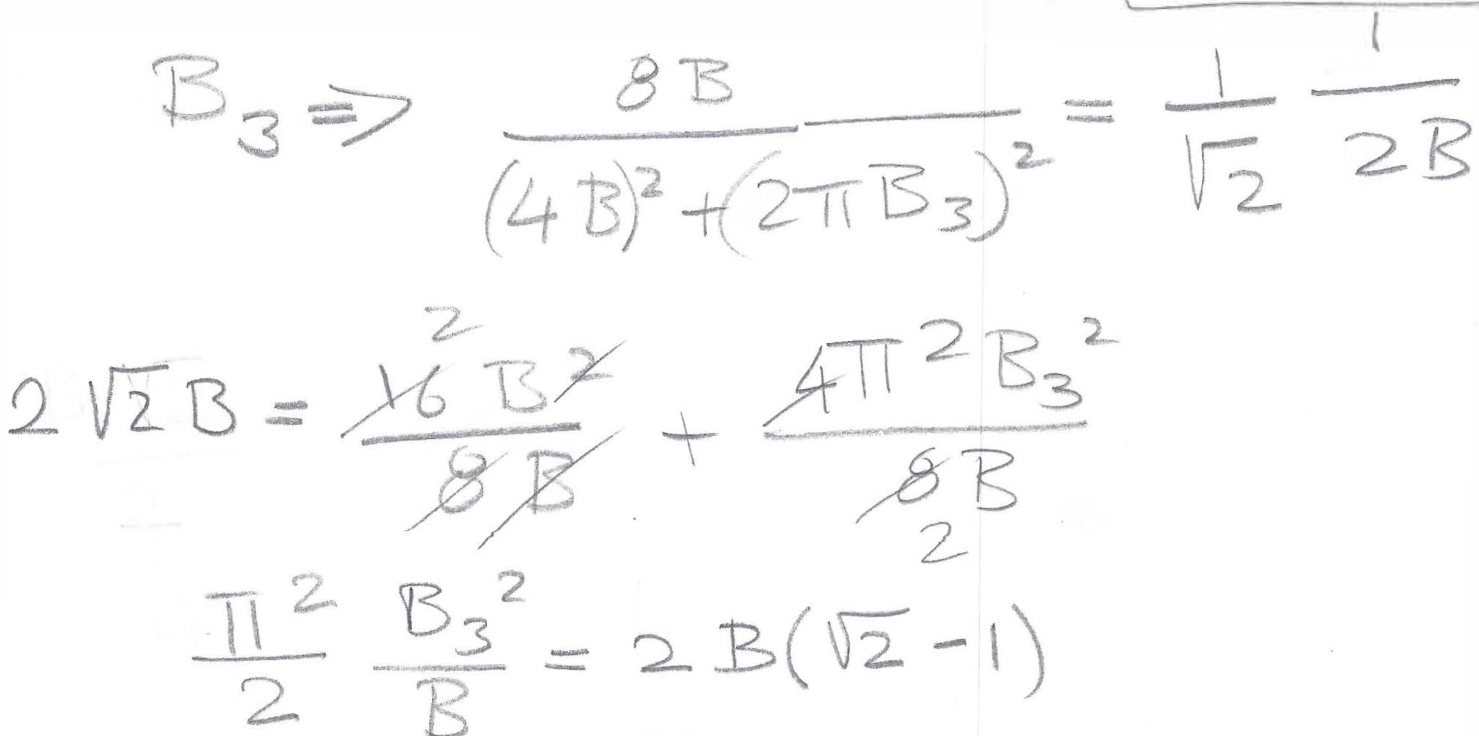 B₃ => 8B / ((4B)² + (2πB₃)²) = 1/√2 1/2B
2√2B = 16B²/8B 2 + 4π²B₃²/8B 2
π²/2 B₃²/B = 2B(√2 - 1)